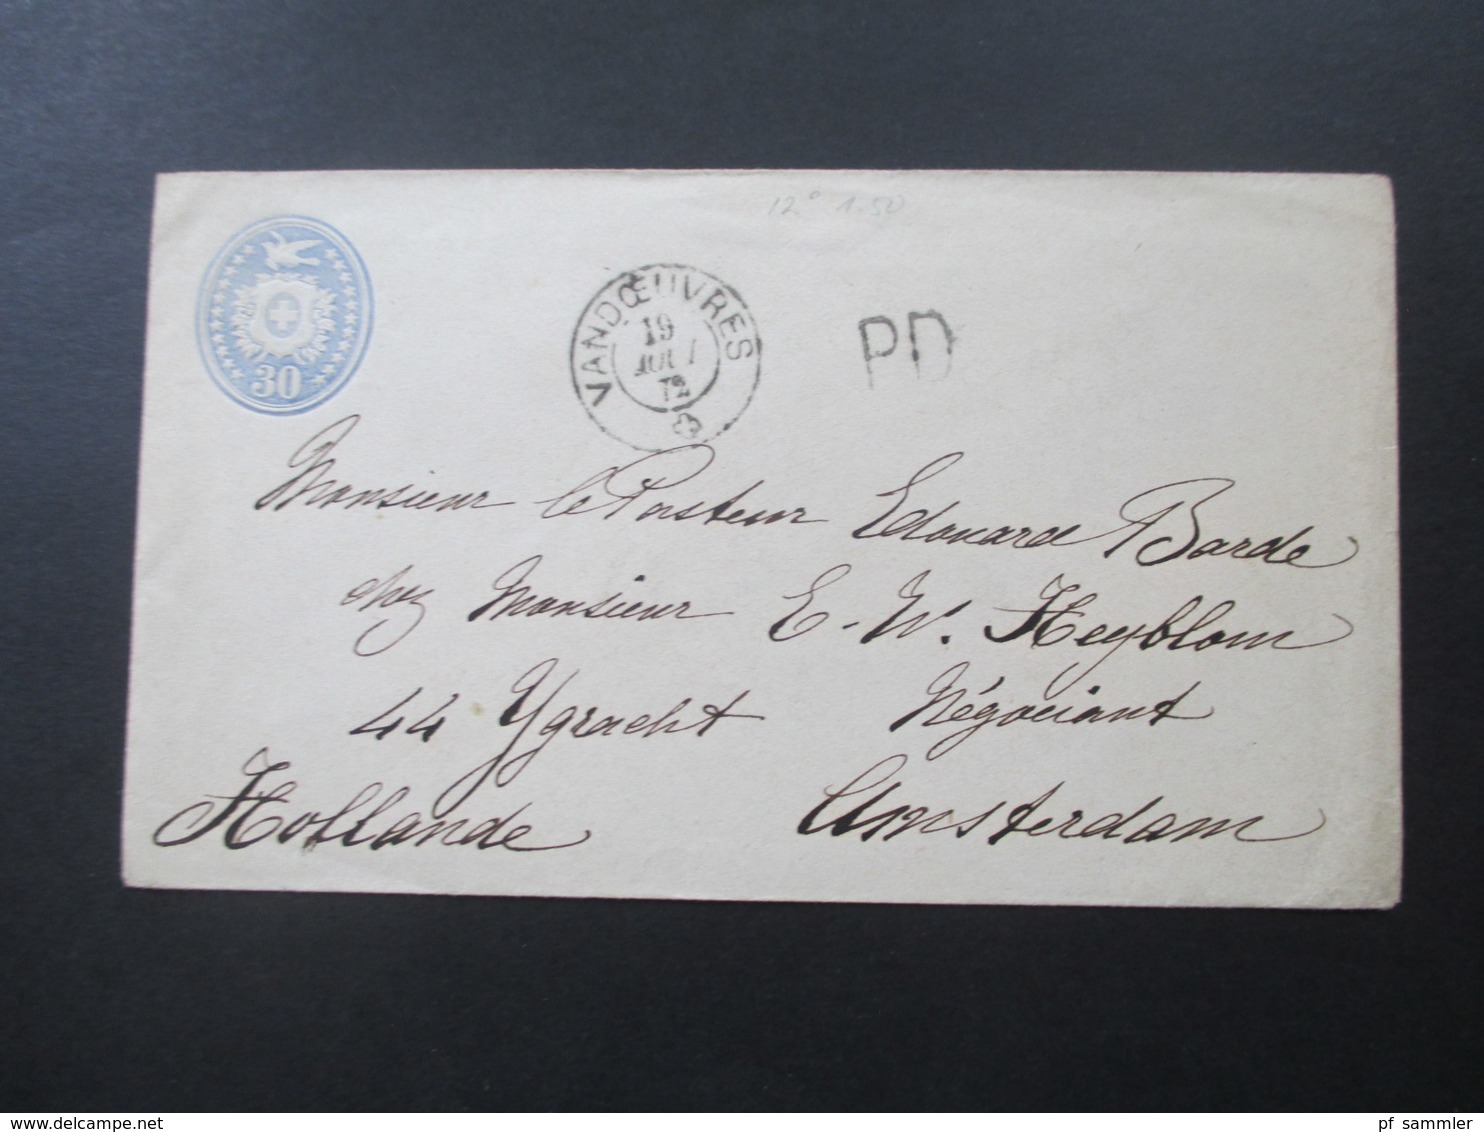 12° 1.50
30
VANDŒUVRES
19
AOUT
72
PD
Monsieur le Pasteur Edouard Barde
chez Monsieur E. W. Heyblom
44 Ygracht Négociant
Hollande Amsterdam
www.delcampe.net
pf_sammler